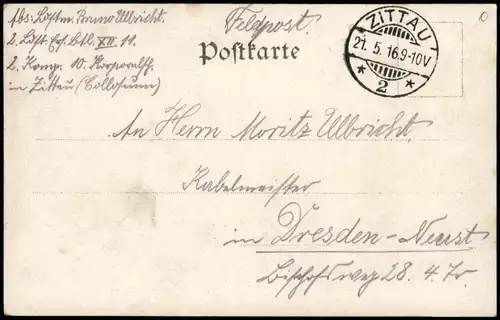 Abs: Ldstm. Bruno Ulbricht.
2. Ldst. Ers. Btl. XII. 11.
2. Komp. 10. Korporalsch.
in Zittau (Colloseum)
Feldpost.
Postkarte
ZITTAU
21.5.16.9-10V
* 2 *
An Herrn Moritz Ulbricht.
Kabelmeister
in Dresden-Neust
Bischofsweg 28. 4. Tr.